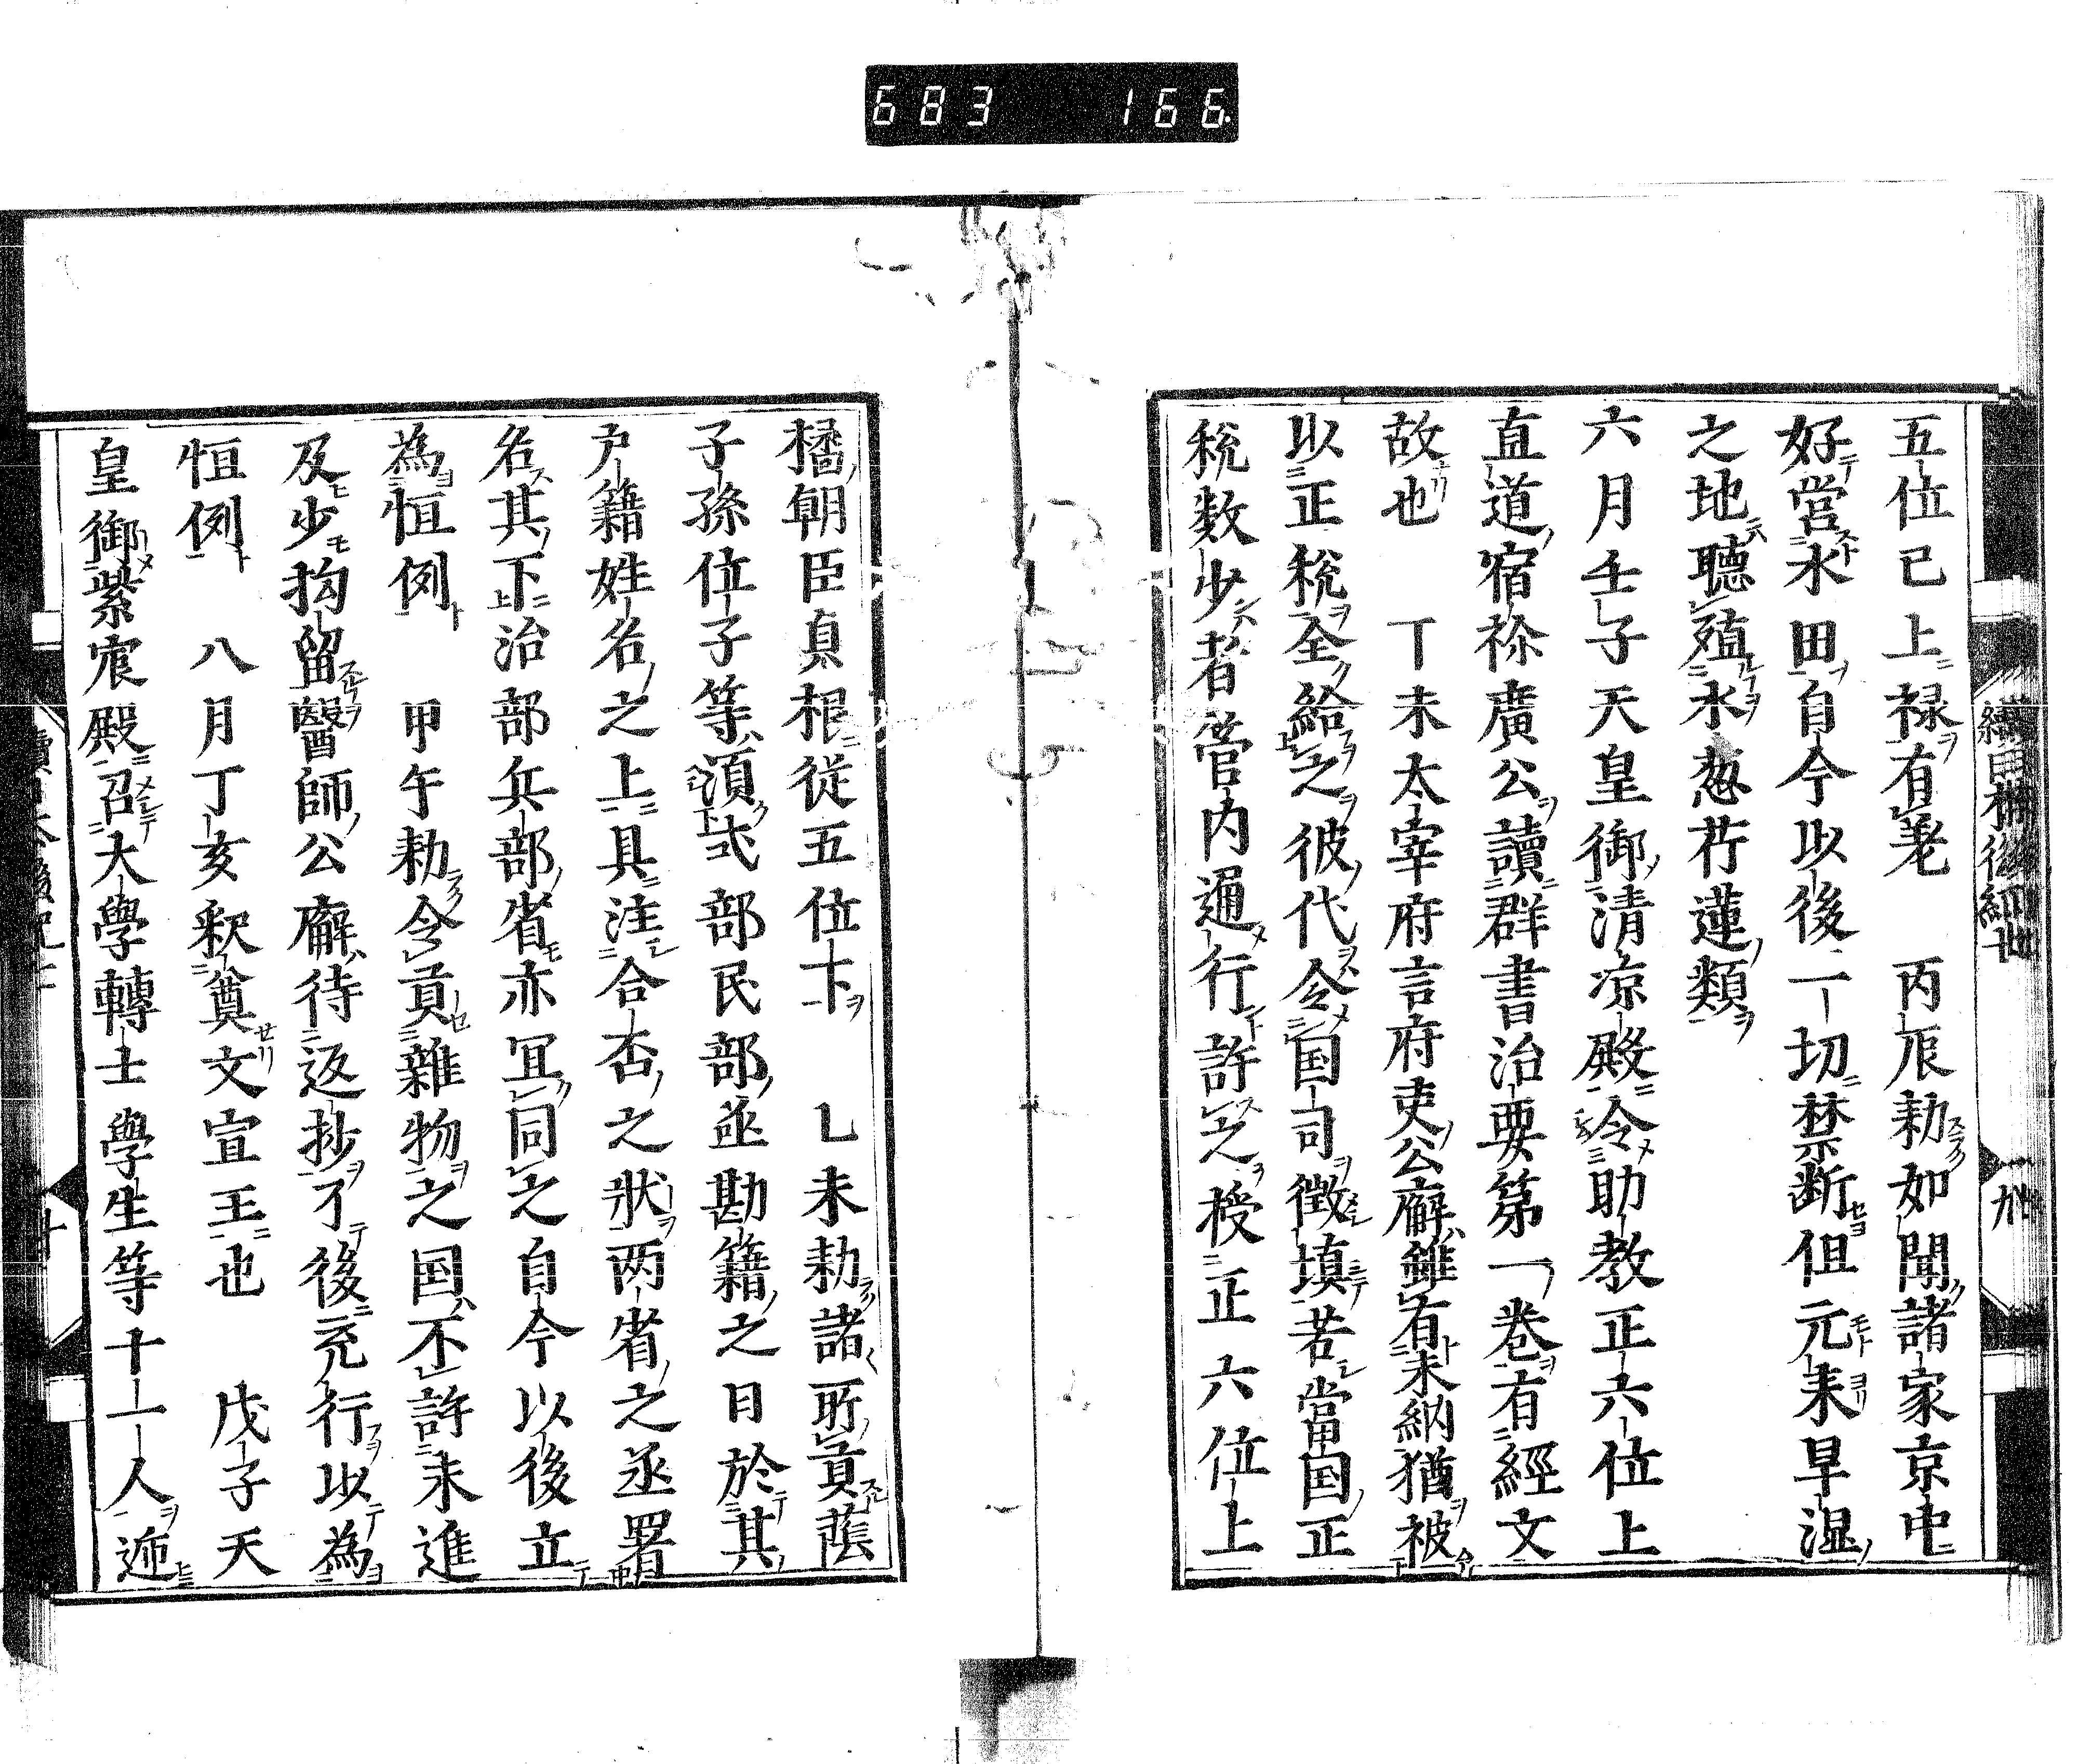 683 166
五位已上禄有差　丙辰勅如聞諸家京中
好営水田自今以後一切禁断但元来旱湿
之地聴殖水葱芹蓮類
六月壬子天皇御清凉殿令助教正六位上
直道宿祢廣公讀群書治要第一巻有經文
故也　丁未太宰府言府吏公廨雖有未納猶被
以正税全給之彼代令国司徴填若當国正
税数少者管内通行許之授正六位上
橘朝臣真根従五位下　乚未勅諸所貢蔭
子孫位子等須式部民部丞勘籍之日於其
户籍姓名之上具注合否之状两省之丞署
名其下治部兵部省亦冝同之自今以後立
為恒例　甲午勅令貢雜物之国不許未進
及少拘留醫師公廨待返抄了後充行以為
恒例　八月丁亥釈奠文宣王也　戊子天
皇御紫宸殿召大學轉士學生等十一人逓
九
十